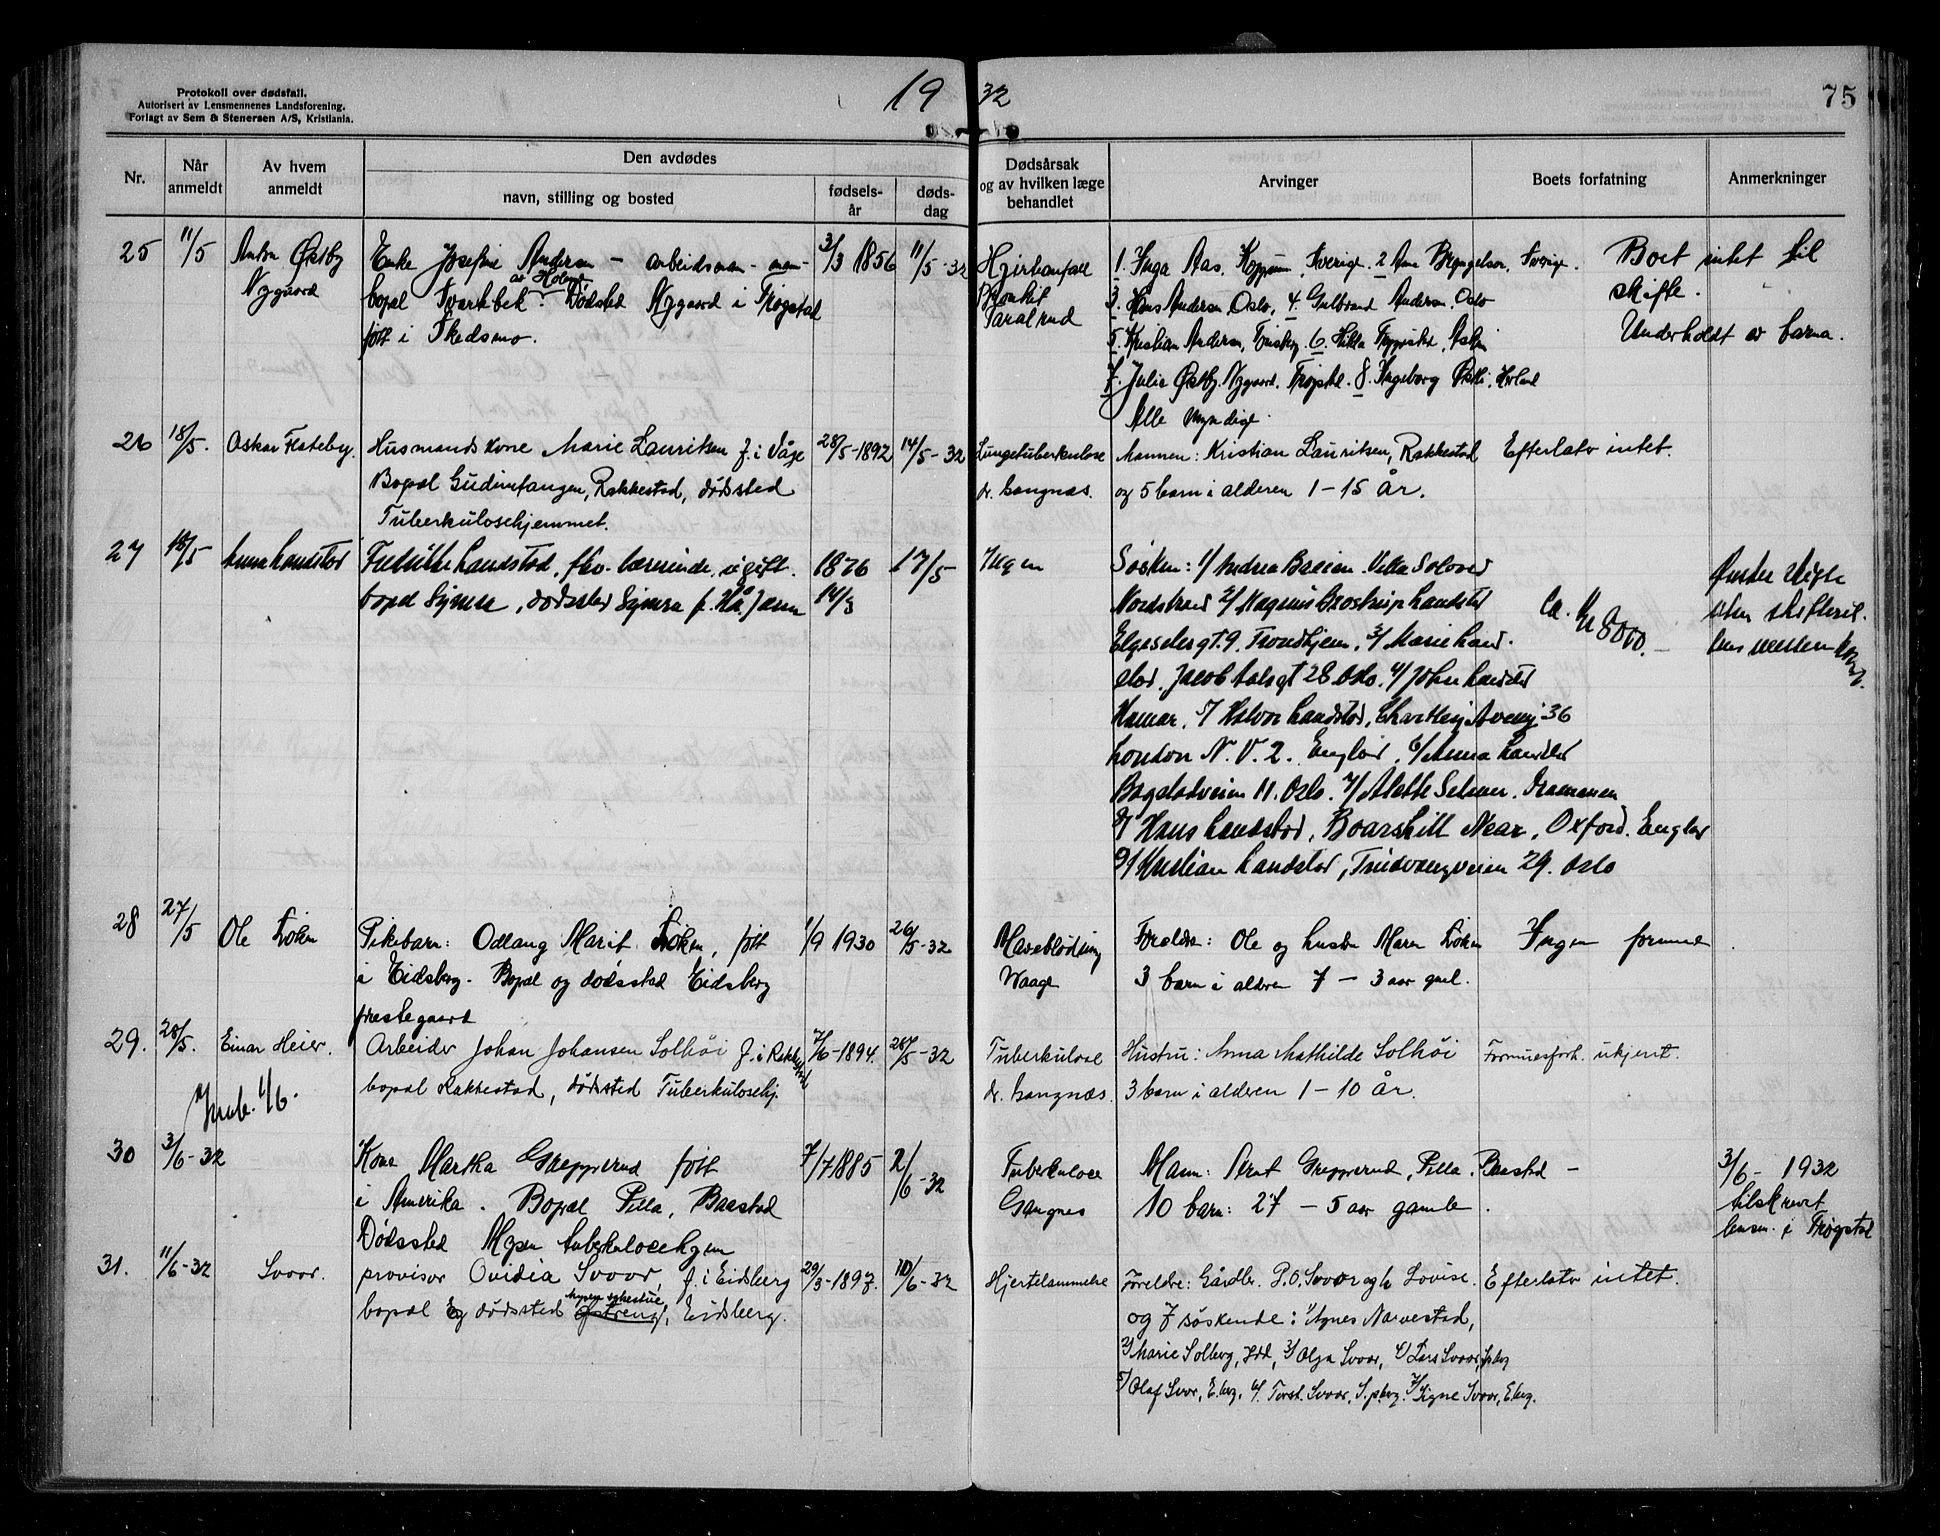 Protokoll over dødsfall.
Autorisert av Lensmennenes Landsforening.
Forlagt av Sem & Stenersen A/S, Kristiania.
19 32
75
Nr.
Når anmeldt
Av hvem anmeldt
Den avdødes
navn, stilling og bosted
fødsels-år
døds-dag
Dødsårsak og av hvilken læge behandlet
Arvinger
Boets forfatning
Anmerkninger
25 11/5 Anton Østby
Nygaard
Enke Josefine Andersen – arbeidsman-
bopæl Tverrbek. Dødsted Nygaard i Trøgstad
født i Skedsmo.
3/3 1856 11/5-32
Bronkit
1. Inga Aas, Sverige. 2 Sverige.
3. Hans Andersen Oslo, 4. Gulbrand Andersen, Oslo
5. Kristian Andersen, 6. Hilda Askim
7. Julie Østby, Nygaard, Trøgstad. 8. Ingeborg
Alle myndige.
Boet intet til
skifte.
Underholdt av barna.
26 18/5. Oskar Flateby.
Husmands kone Marie Lauritsen f. i Våge
Bopæl Gudimtangen, Rakkestad, dødsted
Tuberkulosehjemmet.
28/5-1892 14/5-32
Lungetuberkulose
dr. Gangnæs.
Mannen: Kristian Lauritsen, Rakkestad
og 5 barn i alderen 1 – 15 år.
Efterlatv intet.
27 18/5 Anna Landstad
Fredrikke Landstad, fhv. lærerinde, ugift.
bopæl Symra, dødssted Symra
1876
14/3
17/5
Ingen
Søsken: 1/ Andrea Breien. Villa Solvor
Nordstrand 2/ Magnus Brostrup Landstad
Elgesetergt. 9. Trondhjem, 3/ Marie Land-
stad. Jacob Aalsgt 28 Oslo. 4/ John Landstad
Hamar. 5/ Halvor Landstad, 36
London N.V.2. England, 6/ Anna Landstad
Bogstadveien 11. Oslo. 7/ Alette Selmer.
8/ Hans Landstad, Boarshill Near, Oxford. England
9/ Kristian Landstad, Tuidvangveien 29. Oslo
Ca. Kr 8000.–
Ønsker
uten skifteret-
tens mellemkomst.
28 27/5 Ole Løken
Pikebarn: Odlaug Marit Løken, født
i Eidsberg. Bopæl og dødssted Eidsberg
prestegaard
1/9 1930 26/5-32
Maveblødning
Waage
Forældre: Ole og hustru Maren Løken
3 barn i alderen 7 – 3 aar gml.
Ingen formue
29. 28/5. Einar Heier.
Arbeider Johan Johansen Solhøi f. i Rakkestad
bopæl Rakkestad, dødsted Tuberkulosehj.
7/6-1894. 28/5-32
Tuberkulose
dr. Gangnæs.
Hustru: Anna Mathilde Solhøi
3 barn i alderen 1 – 10 år.
Formuesforh. ukjent.
Innb. 1/6.
30 3/6-32
Kone Martha Grepperud født
i Amerika. Bopæl Pella, Baastad
Dødssted Mysen Tuberkulosehjem
7/7 1885 2/6-32
Tuberkulose
Gangnes
Mann: Bernt Grepperud, Pella. Baastad –
10 barn: 27 – 5 aar gamle.
3/6- 1932
tilskrevet
lensm. i Trøgstad
31. 11/6-32 Svoor.
provisor Ovidia Svoor, f. i Eidsberg
bopæl og dødssted Mysen sykestue, Eidsberg.
29/3-1897. 10/6-32
Hjertelammelse
Foreldre: Gårdbr. P.O. Svoor og h Lovise.
og 7 søskende: 1/ Agnes Narvestad,
2/ Marie Solberg, 3/ Olga Svoor, 4/ Lars Svoor,
5/ Olaf Svoor, E.berg, 6/ Torst. Svoor, 7/ Signe Svoor, E.berg.
Efterlatv intet.